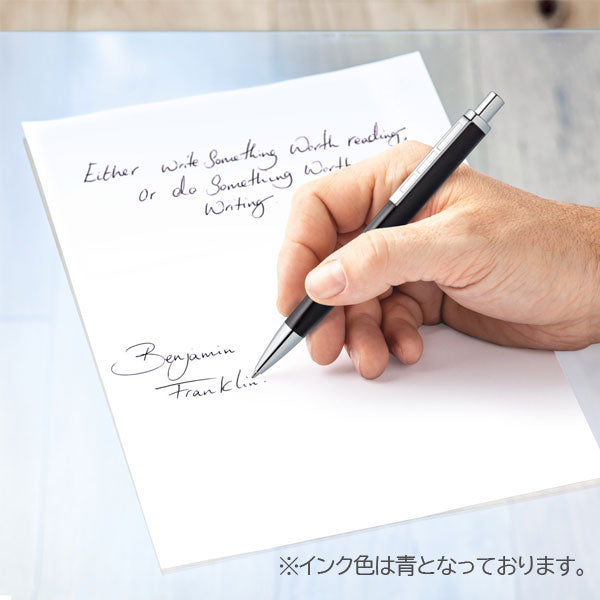 Either write Something Worth reading,
Or do Something Worth
Writing
Benjamin
Franklin.
※インク色は青となっております。